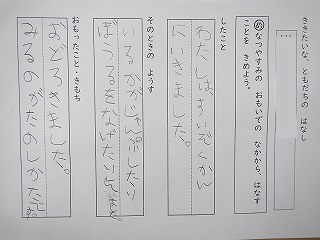 ききたいな、ともだちの はなし
め なつやすみの おもいでの なかから、はなす
ことを きめよう。
したこと
わたしは、すいぞくかん
にいきました。
そのときの ようす
いるかがじゃんぷしたり
ぼうるをなげたり
おもったこと・きもち
おどろきました。
みるのがたのしかたです。